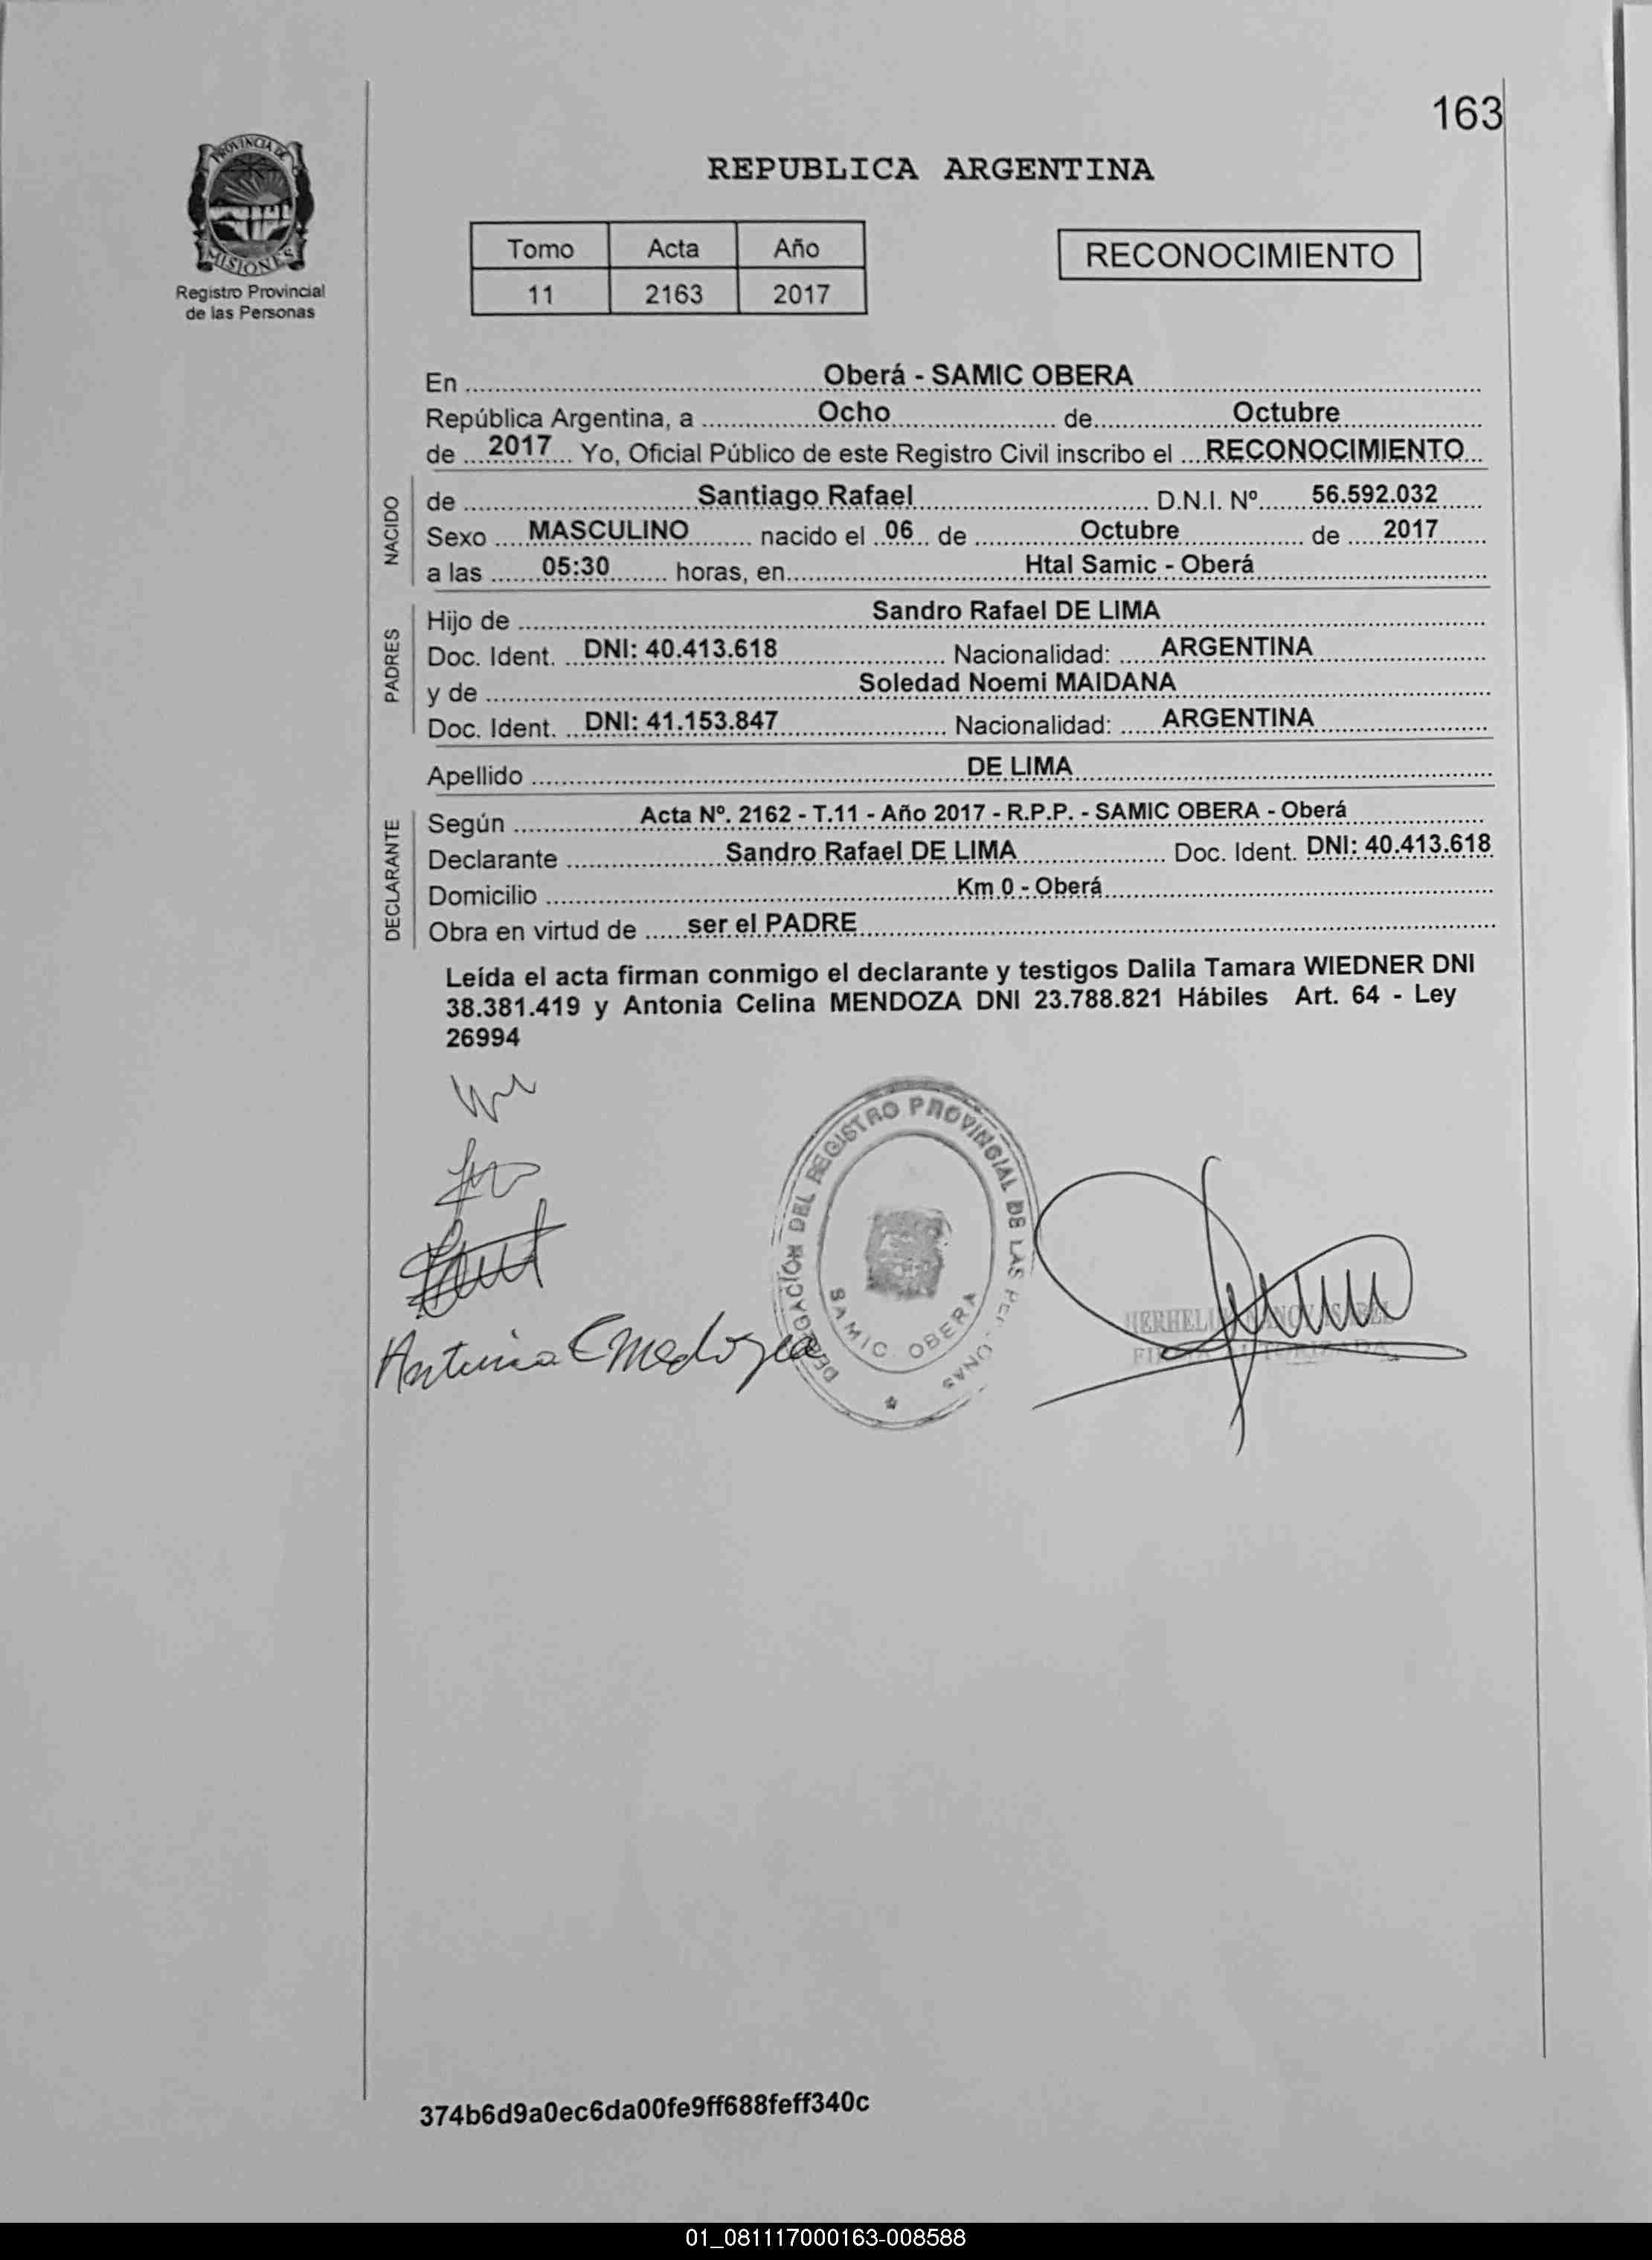 163
PROVINCIA DE
MISIONES
Registro Provincial
de las Personas
REPUBLICA ARGENTINA
Tomo Acta Año
11 2163 2017
RECONOCIMIENTO
En Oberá - SAMIC OBERA
República Argentina, a Ocho de Octubre
de 2017 Yo, Oficial Público de este Registro Civil inscribo el RECONOCIMIENTO
NACIDO
de Santiago Rafael D.N.I. Nº 56.592.032
Sexo MASCULINO nacido el 06 de Octubre de 2017
a las 05:30 horas, en Htal Samic - Oberá
PADRES
Hijo de Sandro Rafael DE LIMA
Doc. Ident. DNI: 40.413.618 Nacionalidad: ARGENTINA
y de Soledad Noemi MAIDANA
Doc. Ident. DNI: 41.153.847 Nacionalidad: ARGENTINA
Apellido DE LIMA
DECLARANTE
Según Acta Nº. 2162 - T.11 - Año 2017 - R.P.P. - SAMIC OBERA - Oberá
Declarante Sandro Rafael DE LIMA Doc. Ident. DNI: 40.413.618
Domicilio Km 0 - Oberá
Obra en virtud de ser el PADRE
Leída el acta firman conmigo el declarante y testigos Dalila Tamara WIEDNER DNI
38.381.419 y Antonia Celina MENDOZA DNI 23.788.821 Hábiles Art. 64 - Ley
26994
DELEGACIÓN DEL REGISTRO PROVINCIAL DE LAS PERSONAS
SAMIC OBERA
374b6d9a0ec6da00fe9ff688feff340c
01_081117000163-008588